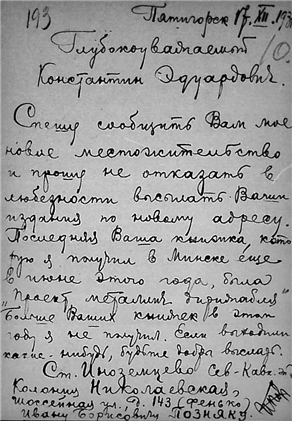 193 Пятигорск 17. XII. 193
Глубокоуважаемый
Константин Эдуардович.
Спешу сообщить Вам мое
новое местожительство
и прошу не отказать в
любезности высылать Ваши
издания по новому адресу.
Последняя Ваша книжка, кото
рую я получил в Минске еще
в июне этого года, была
"Проект металлич. дирижабля"
Больше Ваших книжек в этом
году я не получил. Если выходили
какие-нибудь, будьте добры выслать.
Ст. Иноземцево Сев-Кавк.
Колония Николаевская,
Шоссейная ул. Д. 143 (Фенько)
Ивану Борисовичу Позняку.